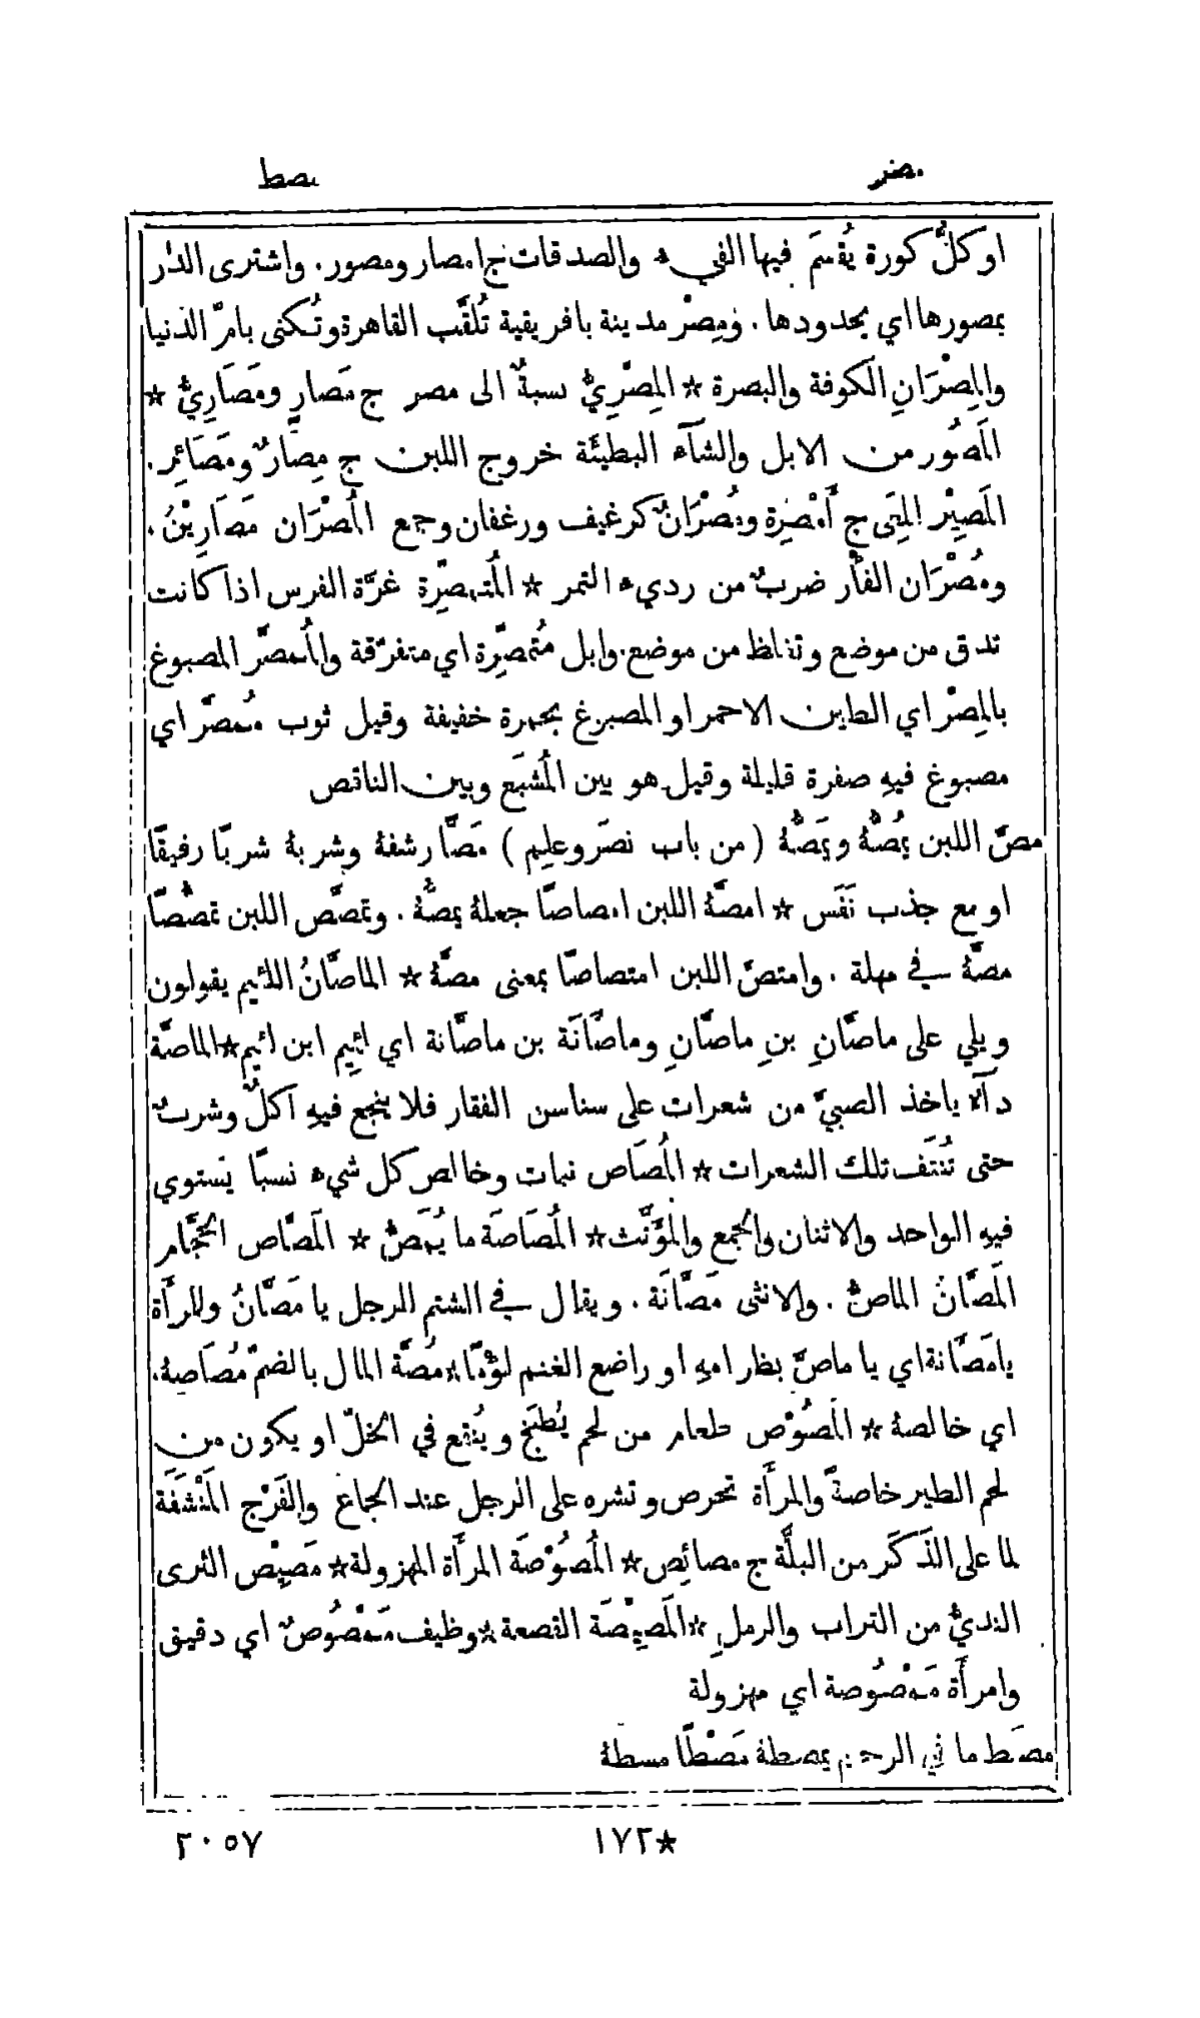 مصر
مصط
او كلُّ كورة يُقسَمَ فيها الفيء والصدقات ج امصار ومصور. واشترى الدار
بمصورها اي بحدودها. ومِصْر مدينة بافريقية تُلقَّب القاهرة وتُكنى بامّ الدنيا
والمِصْرَانِ الكوفة والبصرة * المِصْرِيُّ نسبةٌ الى مصر ج مَصَارٍ ومَصَارِيُّ *
المَصُور من الابل والشآء البطيئة خروج اللبن ج مِصَارٌ ومَصَائِر.
المَصِيْر المِعَى ج أَمْصِرة ومُصْرَانٌ كرغيف ورغفان وجمع المُصْرَان مَصَارِيْنُ.
ومُصْرَان الفأر ضربٌ من رديء التمر * المُتمصِّرة غرَّة الفرس اذا كانت
تدق من موضع وتغلظ من موضع. وابل مُتمصِّرة اي متفرّقة والمُمصَّر المصبوغ
بالمِصْر اي الطين الاحمر او المصبوغ بحمرة خفيفة وقيل ثوب مُمصَّر اي
مصبوغ فيهِ صفرة قليلة وقيل هو بين المُشبَع وبين الناقص
مصَّ اللبن يمُصُّهُ ويمَصُّهُ (من باب نصَر وعلِم) مَصًّا رشفهُ وشربهُ شربًا رفيقًا
او مع جذب نَفَس * امصَّهُ اللبن امصاصًا جعلهُ يمصُّهُ. وتمصَّص اللبن تمصُّصًا
مصَّهُ في مهلة. وامتصَّ اللبن امتصاصًا بمعنى مصَّهُ * الماصَّانُ اللئيم يقولون
ويلي على ماصَّانِ بنِ ماصَّانِ وماصَّانَة بن ماصَّانة اي لئِيم ابن لئيم * الماصَّة
دآءٌ ياخذ الصبيَّ من شعرات على سناسن الفقار فلا ينجع فيهِ اكلٌ وشربٌ
حتى تُنتَف تلك الشعرات * المُصَاص نبات وخالص كل شيء نسبًا يستوي
فيهِ الواحد والاثنان والجمع والمؤَنَّث * المُصَاصَة ما يُمَصُّ * المَصَّاص الحَجَّام
المَصَّانُ الماصُّ. والانثى مَصَّانَة. ويقال في الشتم للرجل يا مَصَّانُ وللمرأَة
يا مَصَّانة اي يا ماصَّ بظر امهِ او راضع الغنم لؤْمًا * مُصَّة المال بالضمّ مُصَاصهُ.
اي خالصهُ * المَصُوْص طعام من لحم يُطبَخ ويُنقع في الخلّ او يكون من
لحم الطير خاصةً والمرأَة تحرص وتشره على الرجل عند الجماع والفَرْج المَنْشفَة
لما على الذَكَر من البلَّة ج مصائِص * المُصُوْصَة المرأَة المهزولة * مَصِيْص الثرى
النديُّ من التراب والرملِ * المَصِيْصَة القصعة * وظيف مَمْصُوصٌ اي دقيق
وامرأَة مَمْصُوصة اي مهزولة
مصَط ما في الرحم يمصطهُ مَصْطًا مسطهُ
★١٧٢
٢٠٥٧